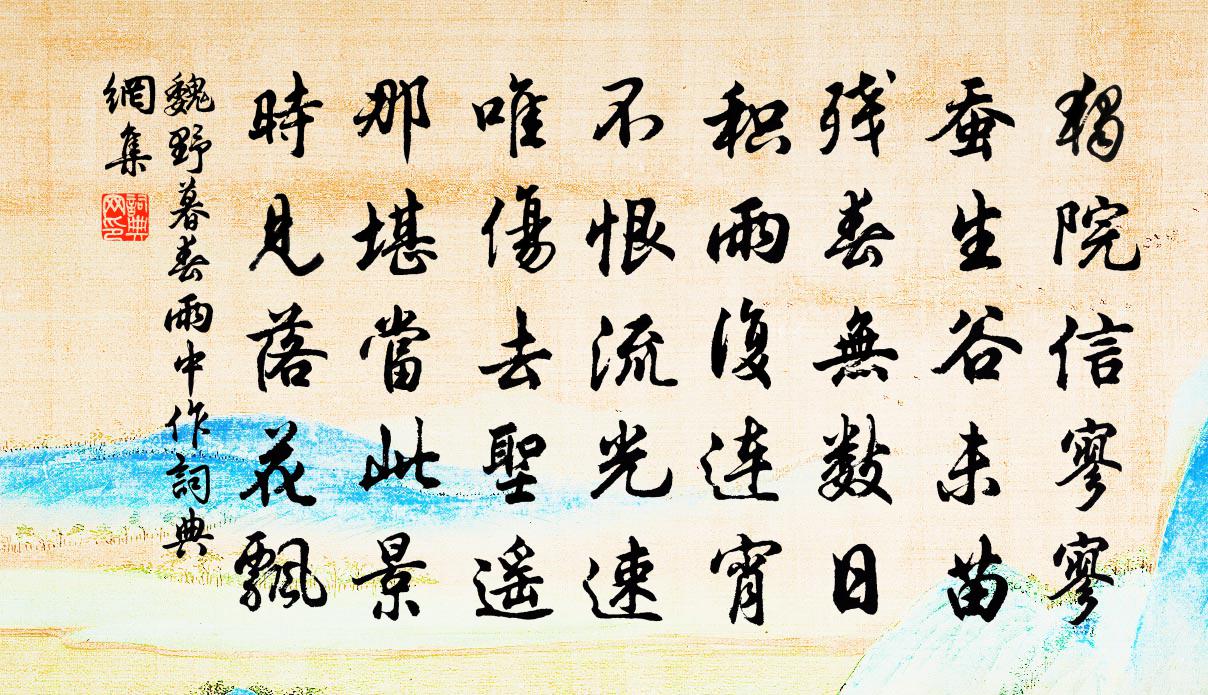 獨院信寥寥
蚕生谷未苗
残春無數日
积雨復连宵
不恨流光速
唯傷去聖遥
那堪當此景
時見落花飄
魏野暮春雨中作詞典
網集
詞典
网印